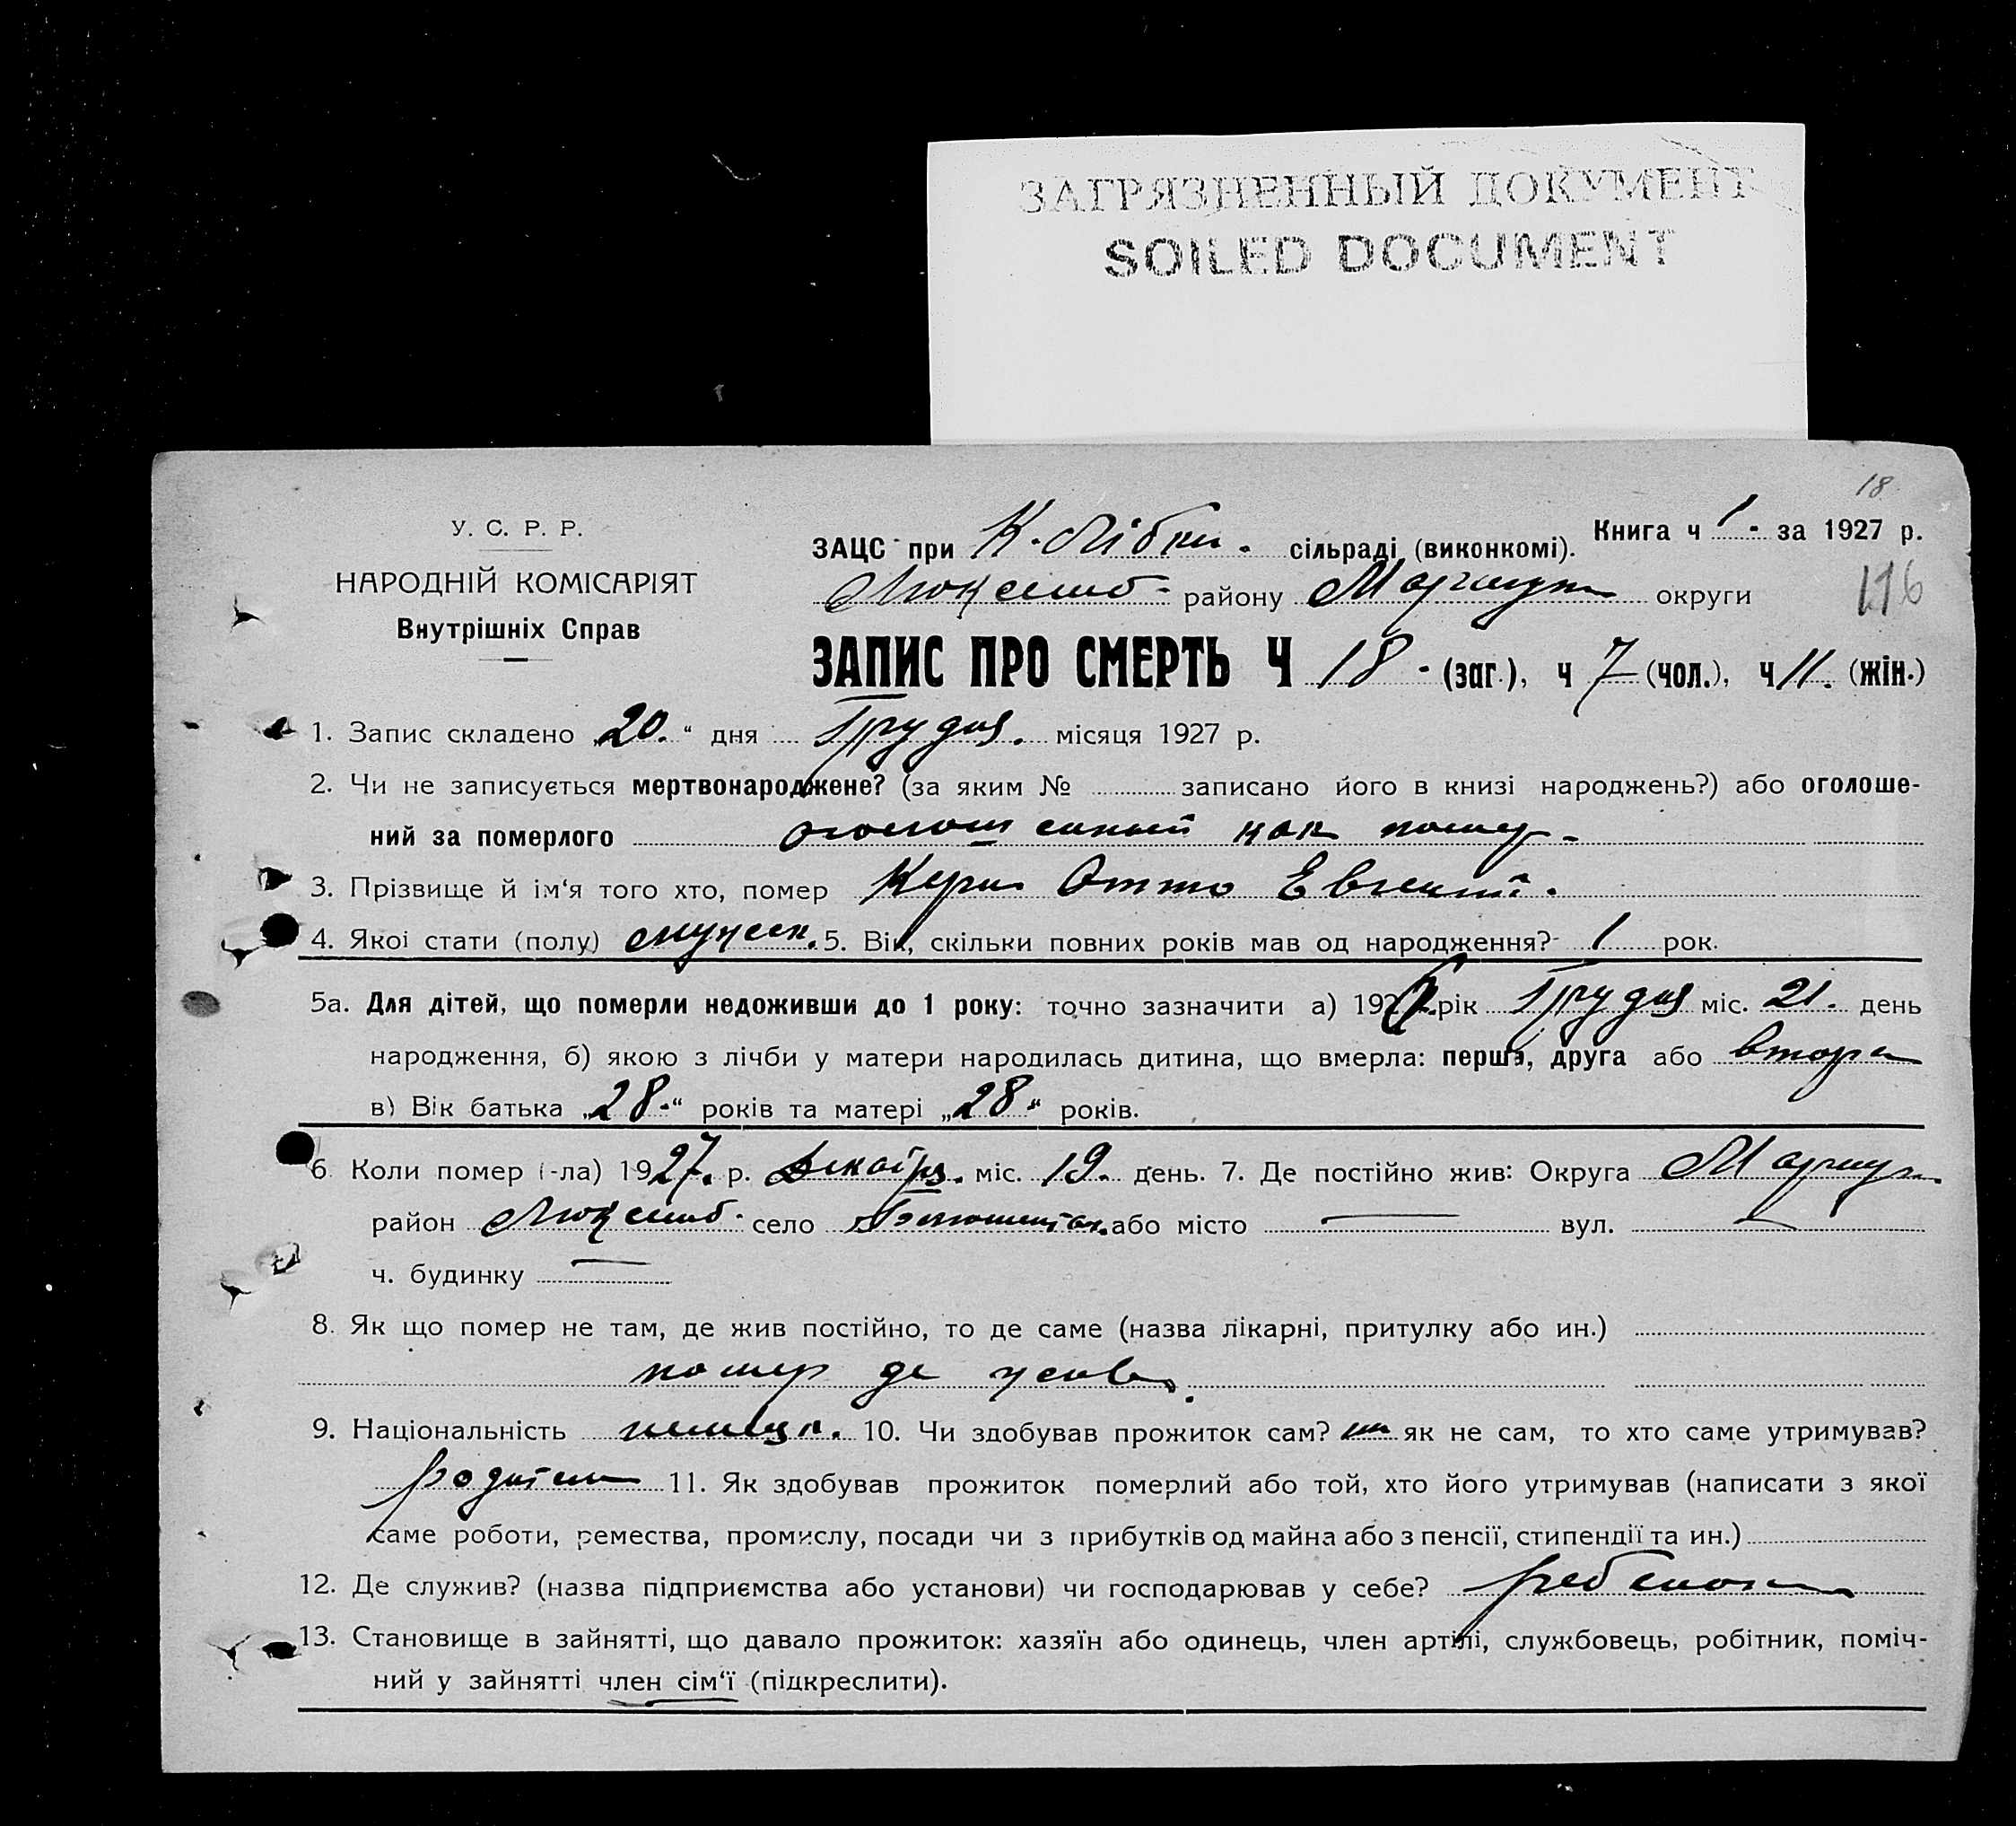 ЗАГРЯЗНЕННЫЙ ДОКУМЕНТ
SOILED DOCUMENT
18
У. С. Р. Р.
НАРОДНІЙ КОМІСАРІЯТ
Внутрішніх Справ
Книга ч 1 - за 1927 р.
ЗАЦС при К. Лібкн. сільраді (виконкомі).
Люксемб - району Маріуп округи
116
ЗАПИС ПРО СМЕРТЬ Ч 18 - (заг.), ч 7 (чол.), ч 11. (жін.)
1. Запис складено „20.“ дня Грудня. місяця 1927 р.
2. Чи не записується мертвонароджене? (за яким № записано його в книзі народжень?) або оголоше-
ний за померлого как помер-
3. Прізвище й ім‘я того хто, помер Керн Отто Евгений.
4. Якоі стати (полу) мужеск. 5. Вік, скільки повних років мав од народження? 1 рок.
5а. Для дітей, що померли недоживши до 1 року: точно зазначити а) 192 рік Грудня міс. 21. день
народження, б) якою з лічби у матери народилась дитина, що вмерла: перша, друга або втора
в) Вік батька „28.“ років та матері „28“ років.
6. Коли помер (-ла) 1927. р. Декабря. міс. 19. день. 7. Де постійно жив: Округа Маріуп.
район Люксемб. село або місто — вул. —
ч. будинку —
8. Як що помер не там, де жив постійно, то де саме (назва лікарні, притулку або ин.)
помер де жив.
9. Національність немецк. 10. Чи здобував прожиток сам? як не сам, то хто саме утримував?
родители 11. Як здобував прожиток померлий або той, хто його утримував (написати з якої
саме роботи, ремества, промислу, посади чи з прибутків од майна або з пенсії, стипендії та ин.)
12. Де служив? (назва підприємства або установи) чи господарював у себе? ребенок
13. Становище в зайнятті, що давало прожиток: хазяїн або одинець, член артілі, службовець, робітник, поміч-
ний у зайнятті член сім‘ї (підкреслити).